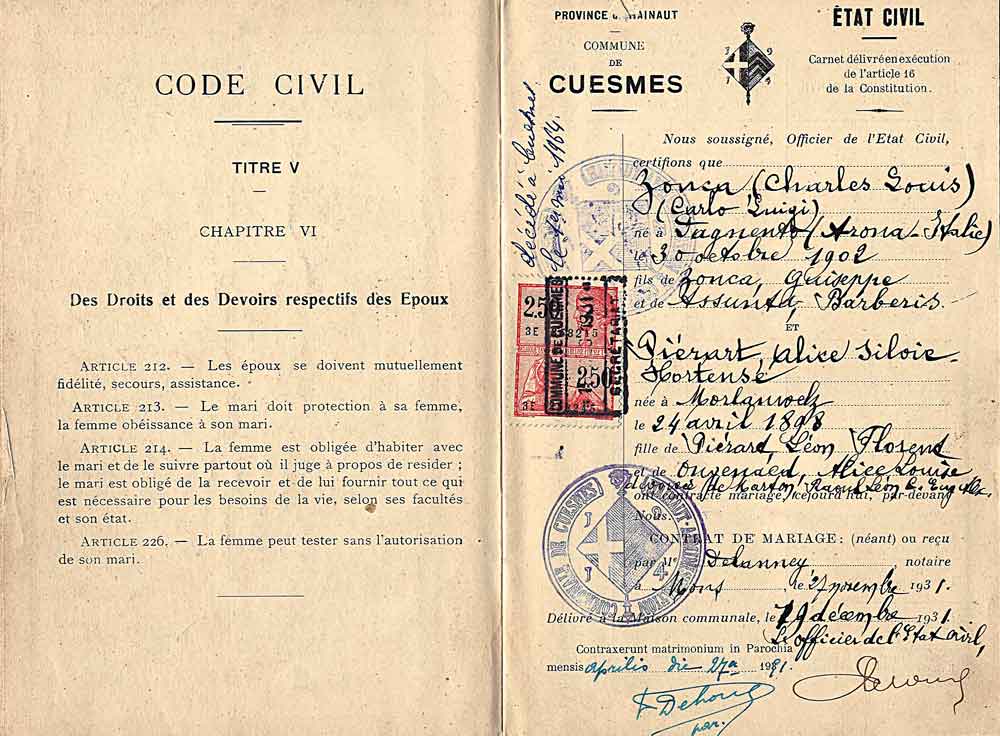 CODE CIVIL
TITRE V
CHAPITRE VI
Des Droits et des Devoirs respectifs des Epoux
ARTICLE 212. — Les époux se doivent mutuellement
fidélité, secours, assistance.
ARTICLE 213. — Le mari doit protection à sa femme,
la femme obéissance à son mari.
ARTICLE 214. — La femme est obligée d'habiter avec
le mari et de le suivre partout où il juge à propos de resider ;
le mari est obligé de la recevoir et de lui fournir tout ce qui
est nécessaire pour les besoins de la vie, selon ses facultés
et son état.
ARTICLE 226. — La femme peut tester sans l'autorisation
de son mari.
PROVINCE HAINAUT
COMMUNE
DE
CUESMES
ÉTAT CIVIL
Carnet délivré en exécution
de l'article 16
de la Constitution.
décédé à Cuesmes
le 1er mai 1964.
Nous soussigné, Officier de l'Etat Civil,
certifions que
Zonca (Charles Louis)
(Carlo Luigi)
né à Dagnento (Arona-Italie)
le 30 octobre 1902
fils de Zonca, Guiseppe
et de Assunta, Barberis.
ET
Piérart, Alice Silvie-
Hortense
née à Morlanwelz
le 24 avril 1898
fille de Piérard, Léon Florent
et de Alice Louise
divorcée de Raoul Léon
ont contracté mariage, cejourd'hui, par-devant
Nous.
CONTRAT DE MARIAGE : (néant) ou reçu
par Me Delanney notaire
à Mons, le 27 novembre 1931.
Délivré à la Maison communale, le 19 décembre 1931.
L'officier de l'Etat civil,
Contraxerunt matrimonium in Parochia
mensis aprilis die 27a 1931.
2.50
1931
COMMUNE DE CUESMES
SECRETARIAT
2.50
COMMUNE DE CUESMES
HAINAUT